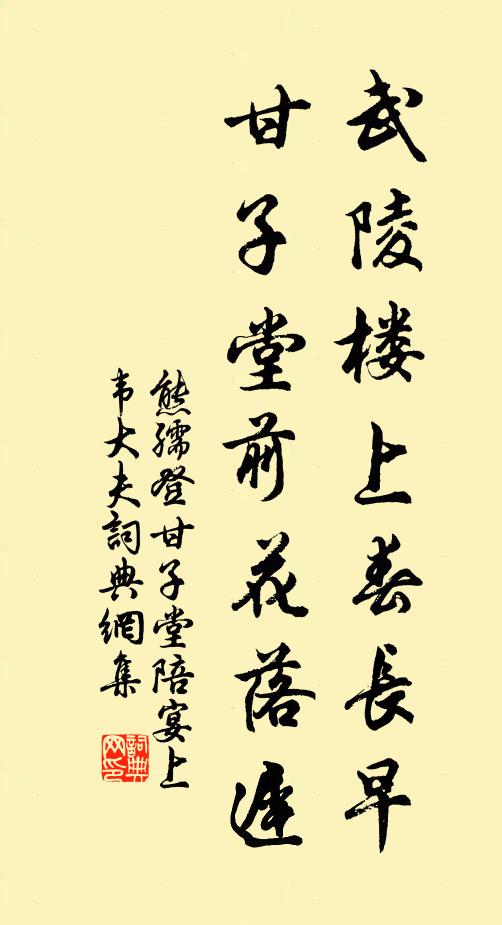 武陵楼上春長早
甘子堂前花落遲
熊孺登甘子堂陪宴上
韦大夫詞典網集
詞典网印